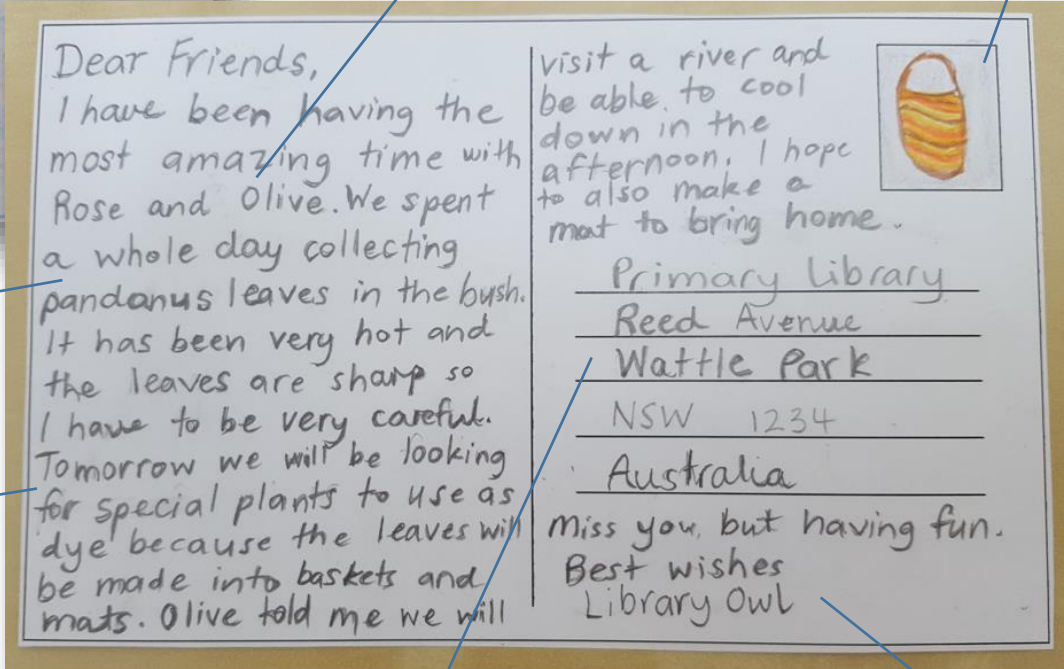 Dear Friends,
I have been having the
most amazing time with
Rose and Olive. We spent
a whole day collecting
pandanus leaves in the bush.
It has been very hot and
the leaves are sharp so
I have to be very careful.
Tomorrow we will be looking
for special plants to use as
dye because the leaves will
be made into baskets and
mats. Olive told me we will
visit a river and
be able. to cool
down in the
afternoon. I hope
to also make a
mat to bring home.
Primary Library
Reed Avenue
Wattle Park
NSW 1234
Australia
Miss you, but having fun.
Best wishes
Library Owl